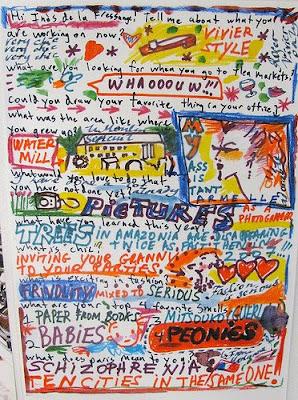 Hi Inès de la Fressange! Tell me about what you
are working on now?
VIVIER
STYLE
very chic
very chic
what are you looking for when you go to flea markets?
WHAOOOUW!!
Could you draw your favorite thing in your office?
what was the area like where
you grew up?
WATER
MILL
MY
ASS
IS
TANT
what would you love to do that
you have not done yet?
PICTURES
AS
PHOTOGRAPHER
TREES IN AMAZONIA ARE DISAPPEARING
TWICE AS FAST THEN
what is chic?
INVITING YOUR GRANNY
TO YOUR PARTIES
what is exciting in fashion?
FRINDLITY MIXED TO SERIOUS
what are your top 4 favorite smells?
1 PAPER FROM BOOKS
MITSOUKO GUERL
BABIES
PEONIES
what does paris mean to you?
SCHIZOPHRENIA
TEN CITIES IN THE SAME ONE!